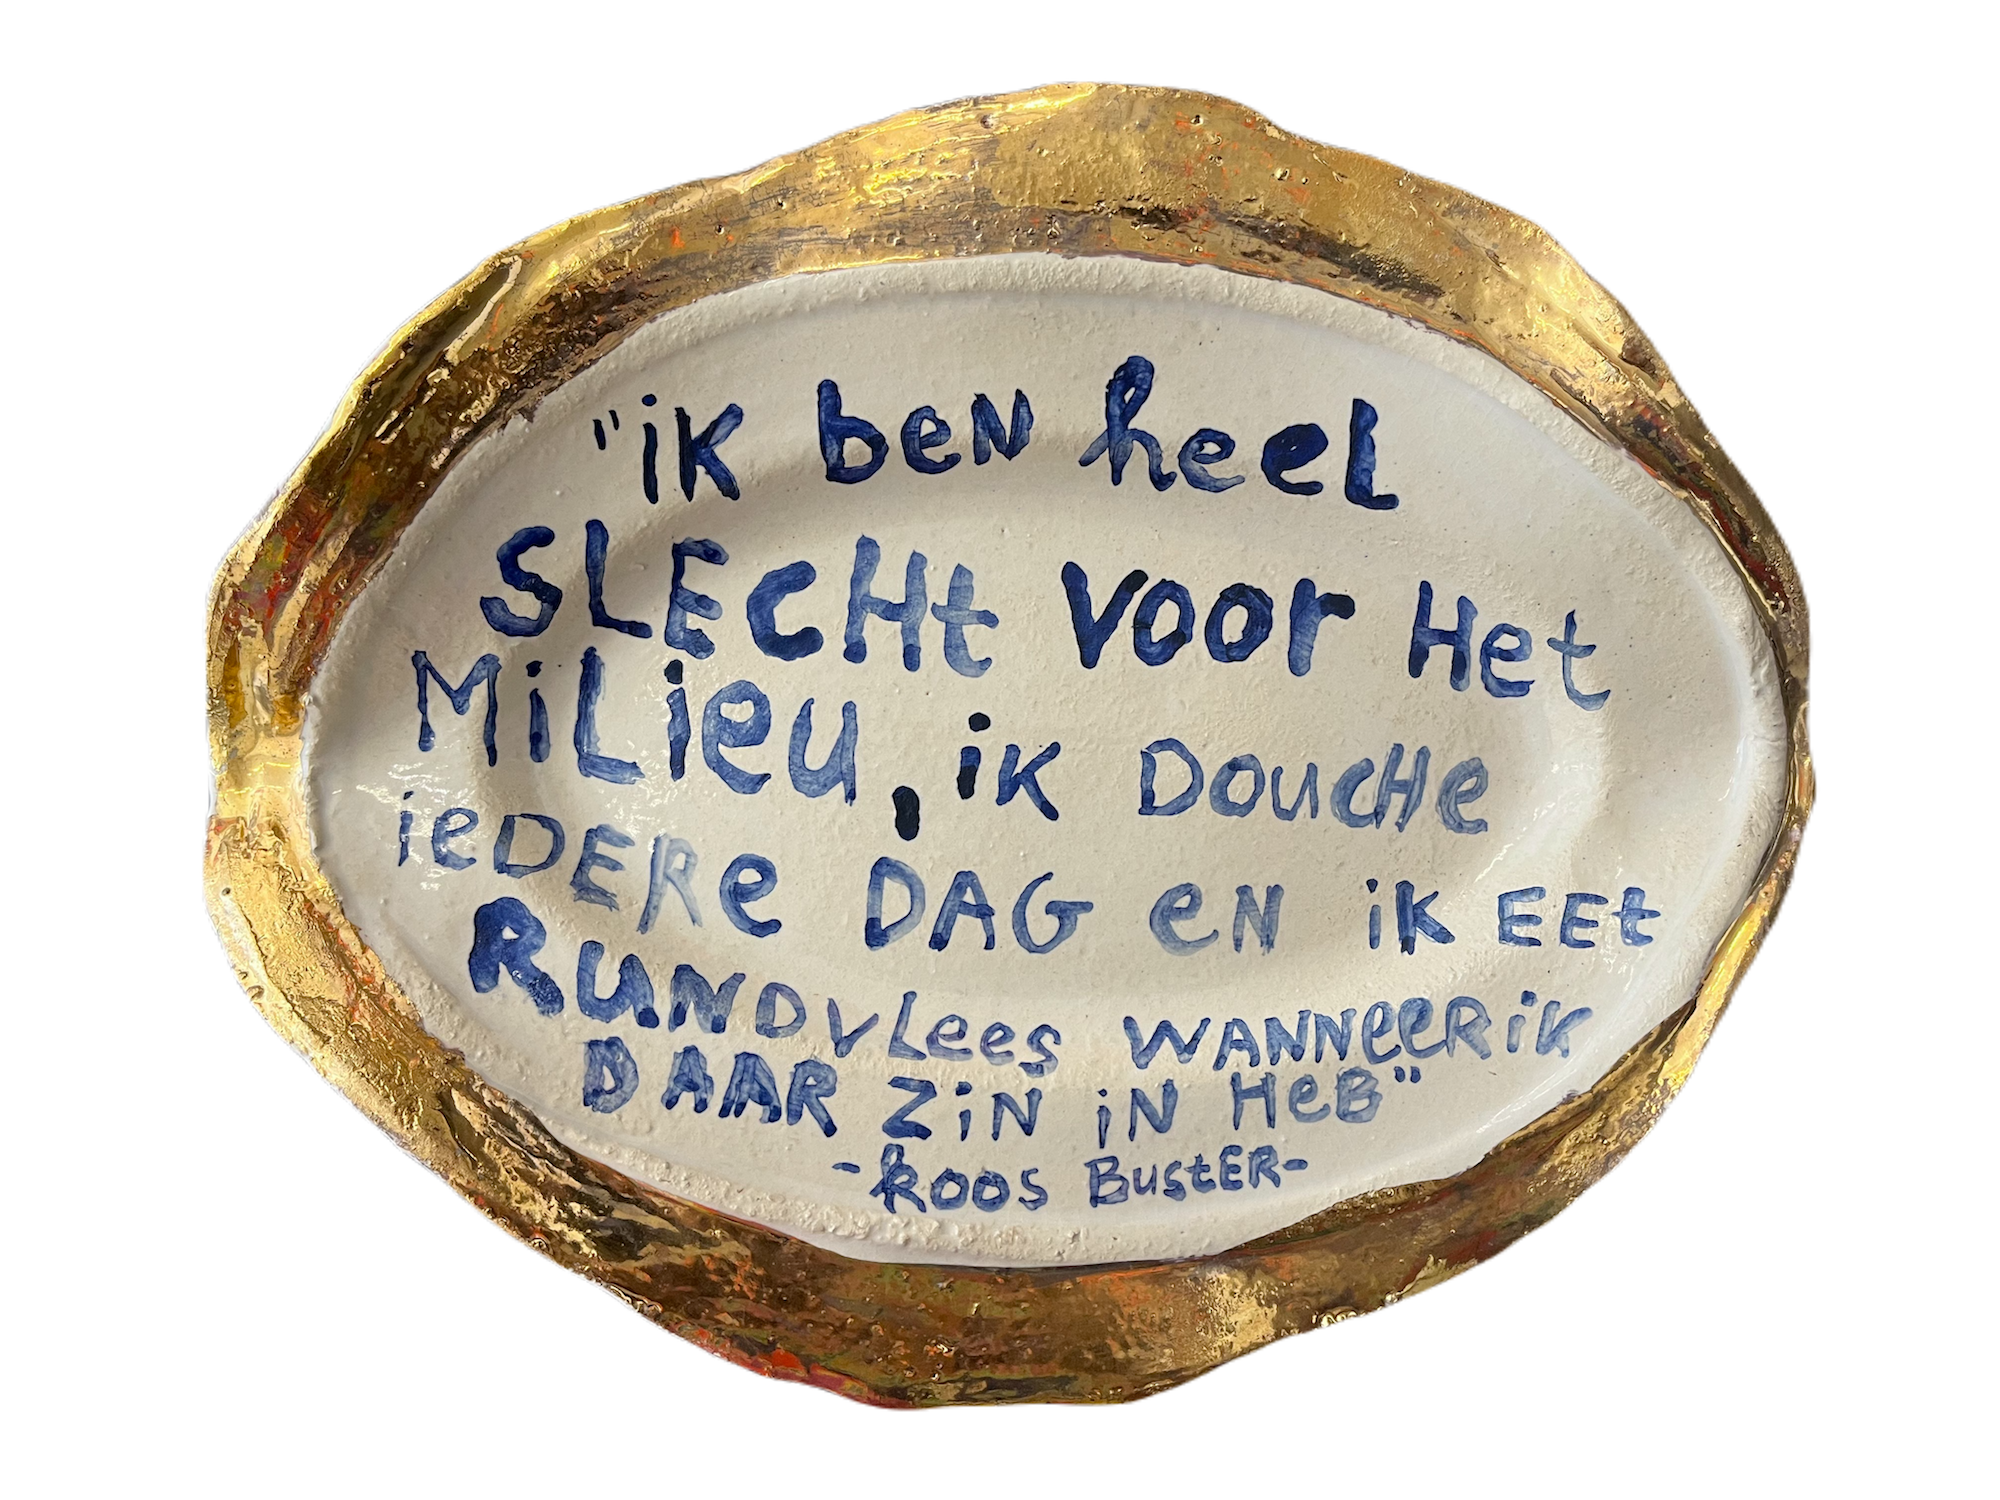 "iK beN heel
SLEcHt Voor Het
MiLieu, iK DoucHe
ieDERe DAG eN iK EEt
RUNDvLees WANNeeR iK
DAAR ZiN iN HeB"
-koos BustER-